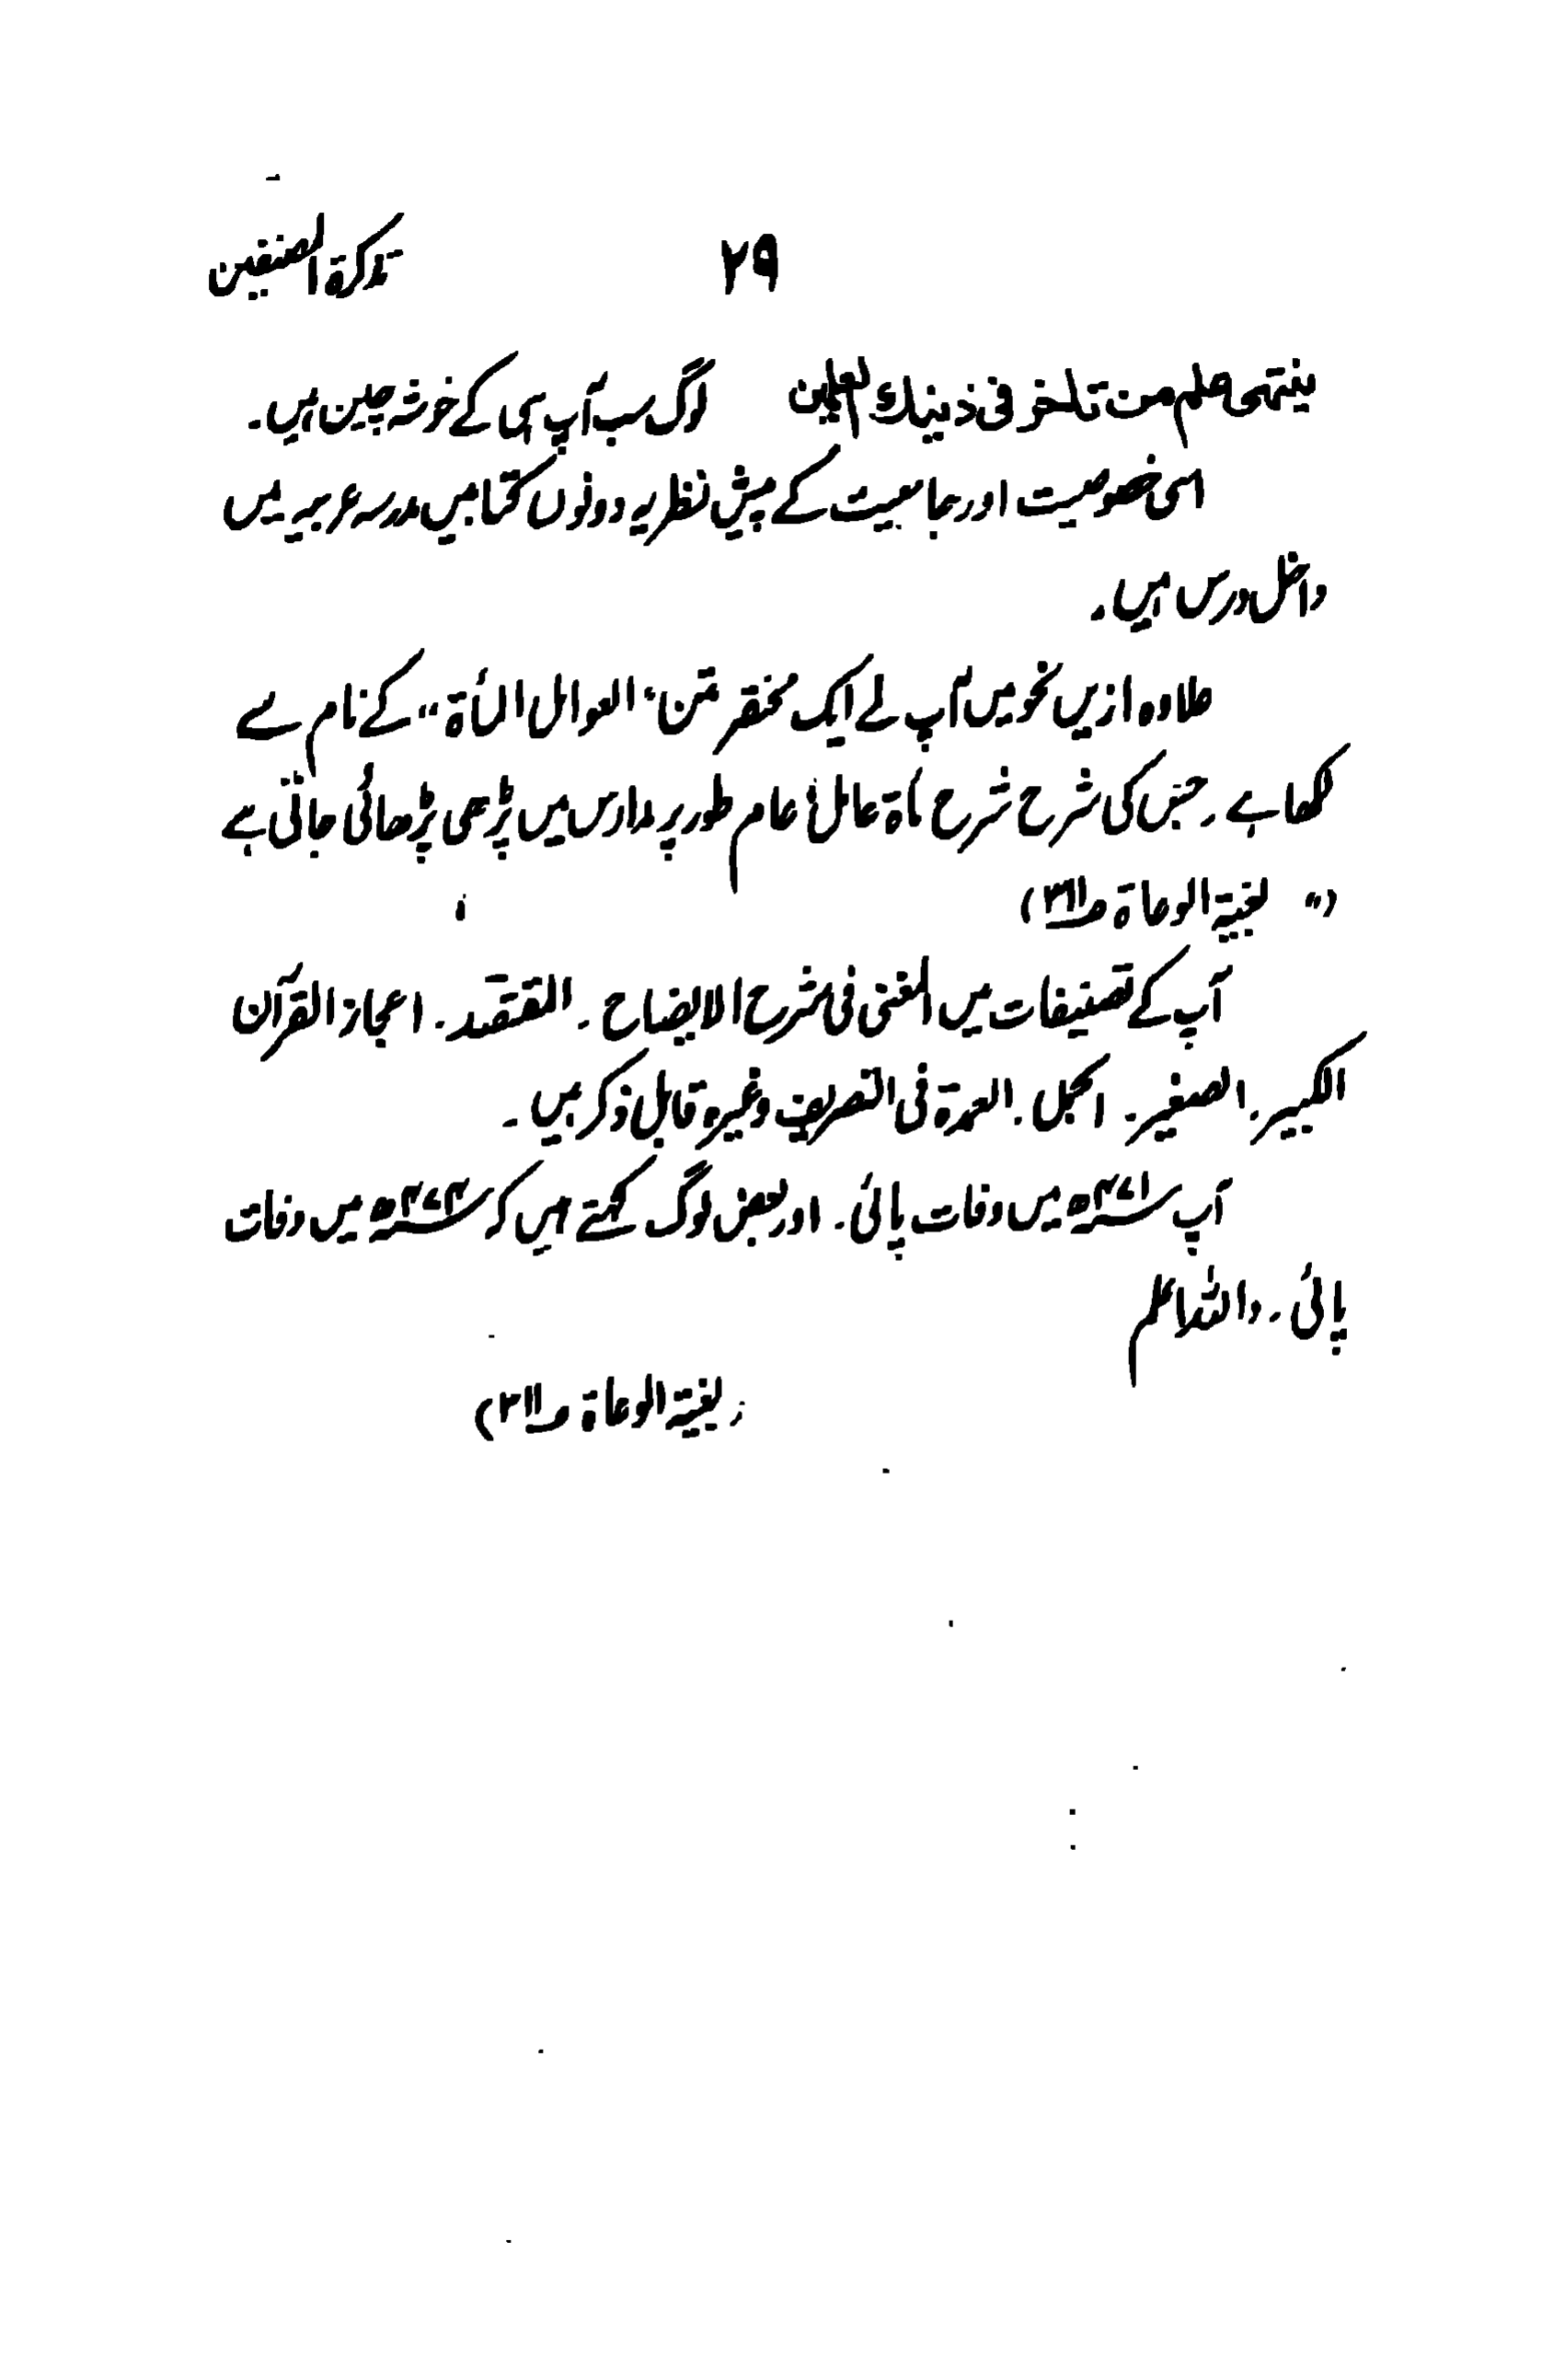 تذکرۃ المصنفین
۲۹
ینتھی علم من تأخر فی ذینک العلمین لوگ سب آپ ہی کے خوشہ چین ہیں۔
اسی خصوصیت اور جامعیت کے پیش نظر یہ دونوں کتابیں مدرسہ عربیہ میں
داخل درس ہیں۔
علاوہ ازیں نحو میں آپ نے ایک مختصر متن "العوامل المأۃ" کے نام سے
لکھا ہے۔ جس کی شرح شرح مأۃ عامل عام طور پر مدارس میں پڑھی پڑھائی جاتی ہے
(" بغیۃ الوعاۃ ص۳۱۱)
آپ کے تصنیفات میں المغنی فی شرح الایضاح۔ المقتصد۔ اعجاز القرآن
الکبیر۔ الصغیر۔ الجمل۔ العمدۃ فی التصریف وغیرہ قابل ذکر ہیں۔
آپ ۴۷۱ھ میں وفات پائی۔ اور بعض لوگ کہتے ہیں کہ ۴۷۴ھ میں وفات
پائی۔ واللہ اعلم
(بغیۃ الوعاۃ ص۳۱۱)